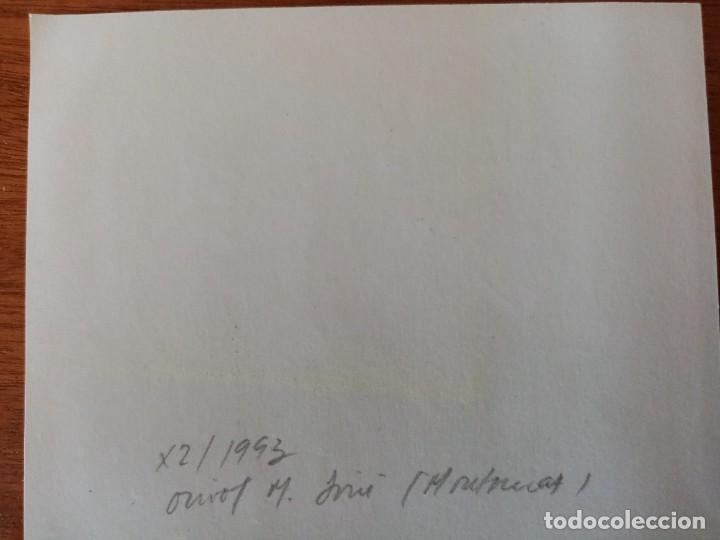 x2/1993
Oriol M. Diví (Montserrat)
todocoleccion